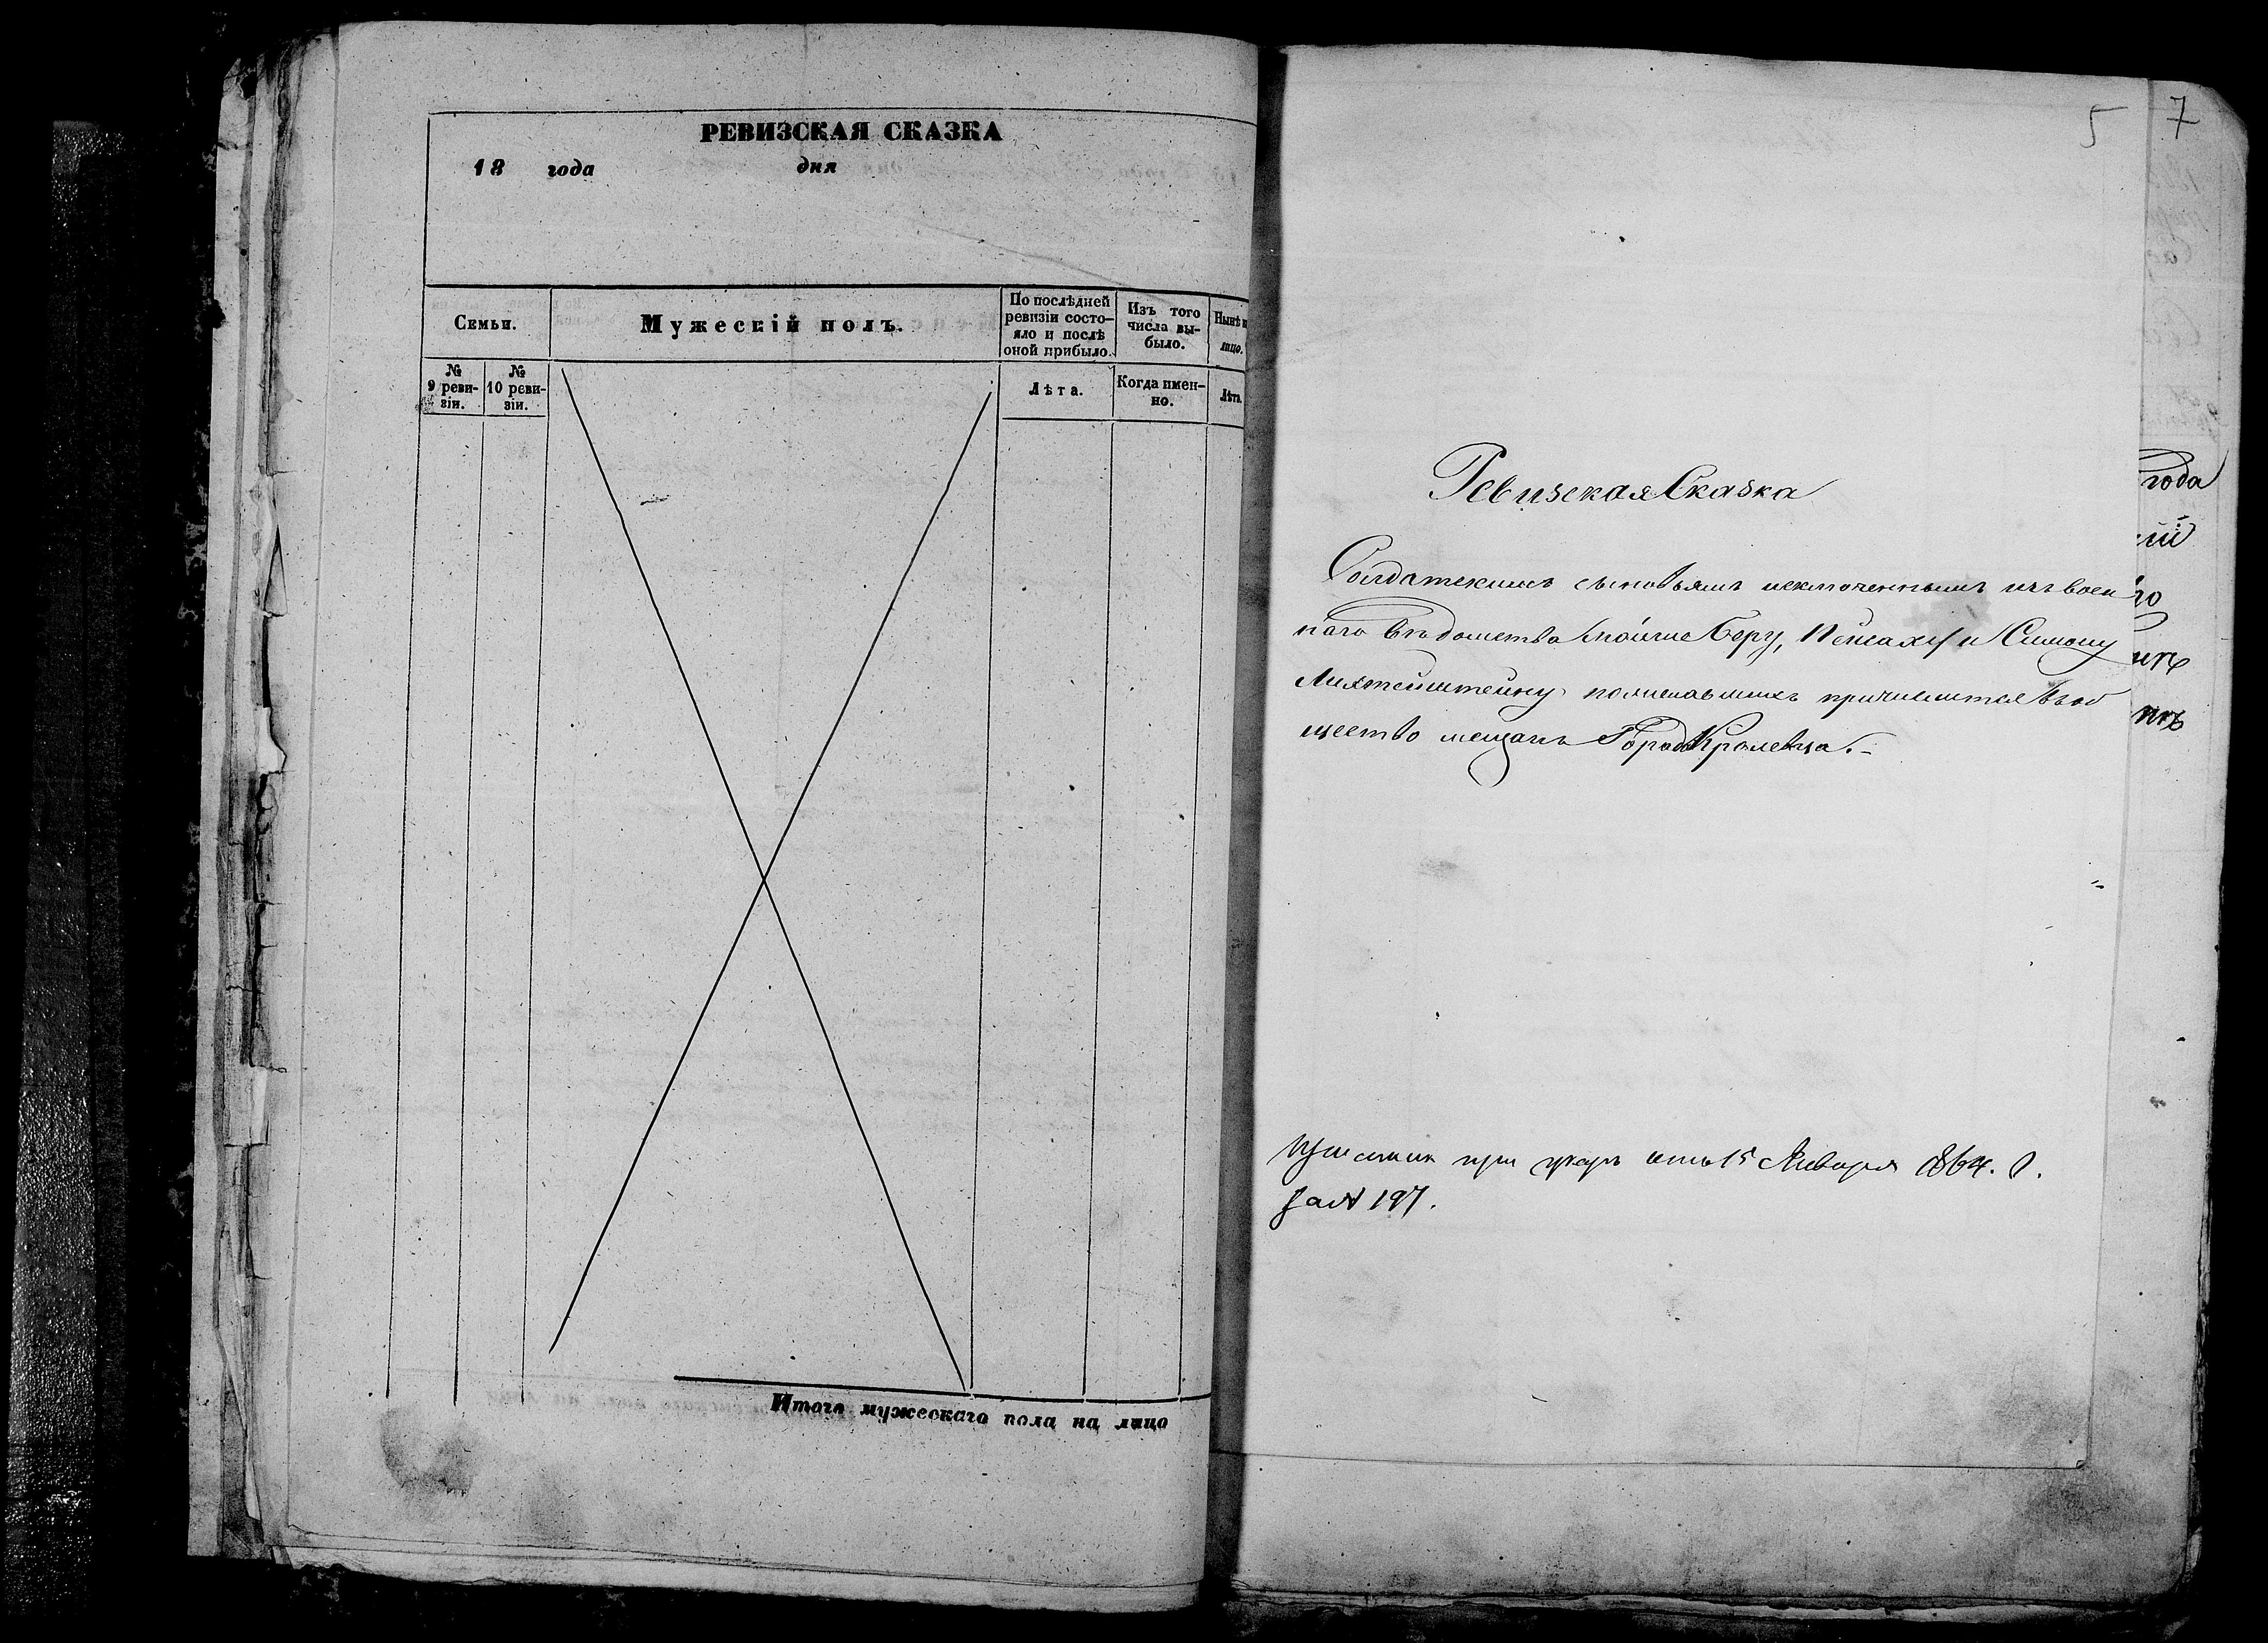 РЕВИЗСКАЯ СКАЗКА
18 года дня
Семьи.
Мужескій полъ.
По послѣдней
ревизіи состо-
яло и послѣ
оной прибыло.
Изъ того
числа вы-
было.
Нынѣ н
лицо.
№
9 реви-
зіи.
№
10 реви-
зіи.
Лѣта.
Когда имен-
но.
Лѣта.
Итого мужескаго пола на лицо
5
7
Ревизская Сказка
Солдатскимъ сыновьямъ исключеннымъ изъ воен
наго вѣдомства Беру, Пейсаху и Симону
Лихтенштейну причислится въ об
щество мещанъ Города Кролевца.-
при указѣ отъ 15 Января 1864. г.
за № 197.
года
ій
го